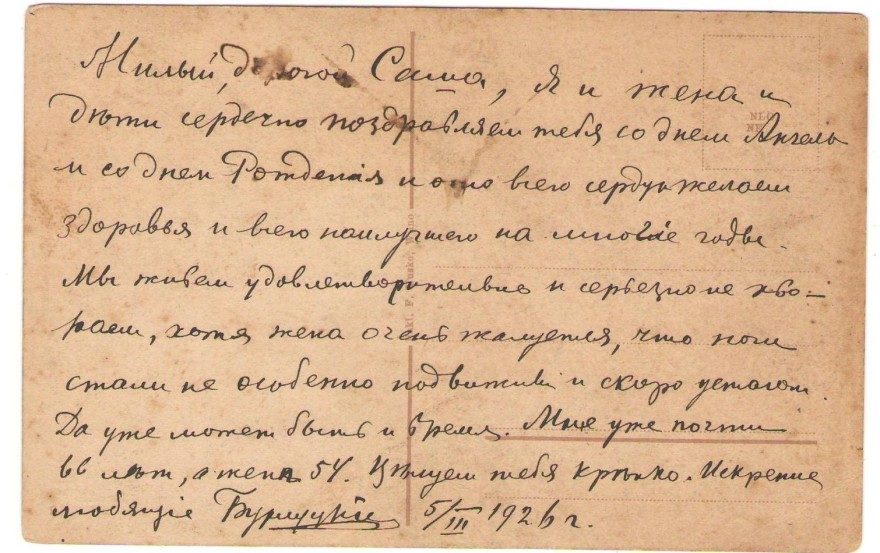 Милый, дорогой Саша, Я и жена и
дѣти сердечно поздравляем тебя со днем Ангела
и со днем Рождения и ото всего сердца желаем
здоровья и всего наилучшего на многіе годы.
Мы живем удовлетворительно и серьезно не хво-
раем, хотя жена очень жалуется, что ноги
стали не особенно подвижны и скоро устают.
Да уже может быть и время. Мне уже почти
66 лѣт, а жене 54. Цѣлуем тебя крѣпко. Искренне
любящіе 5/III 1926 г.